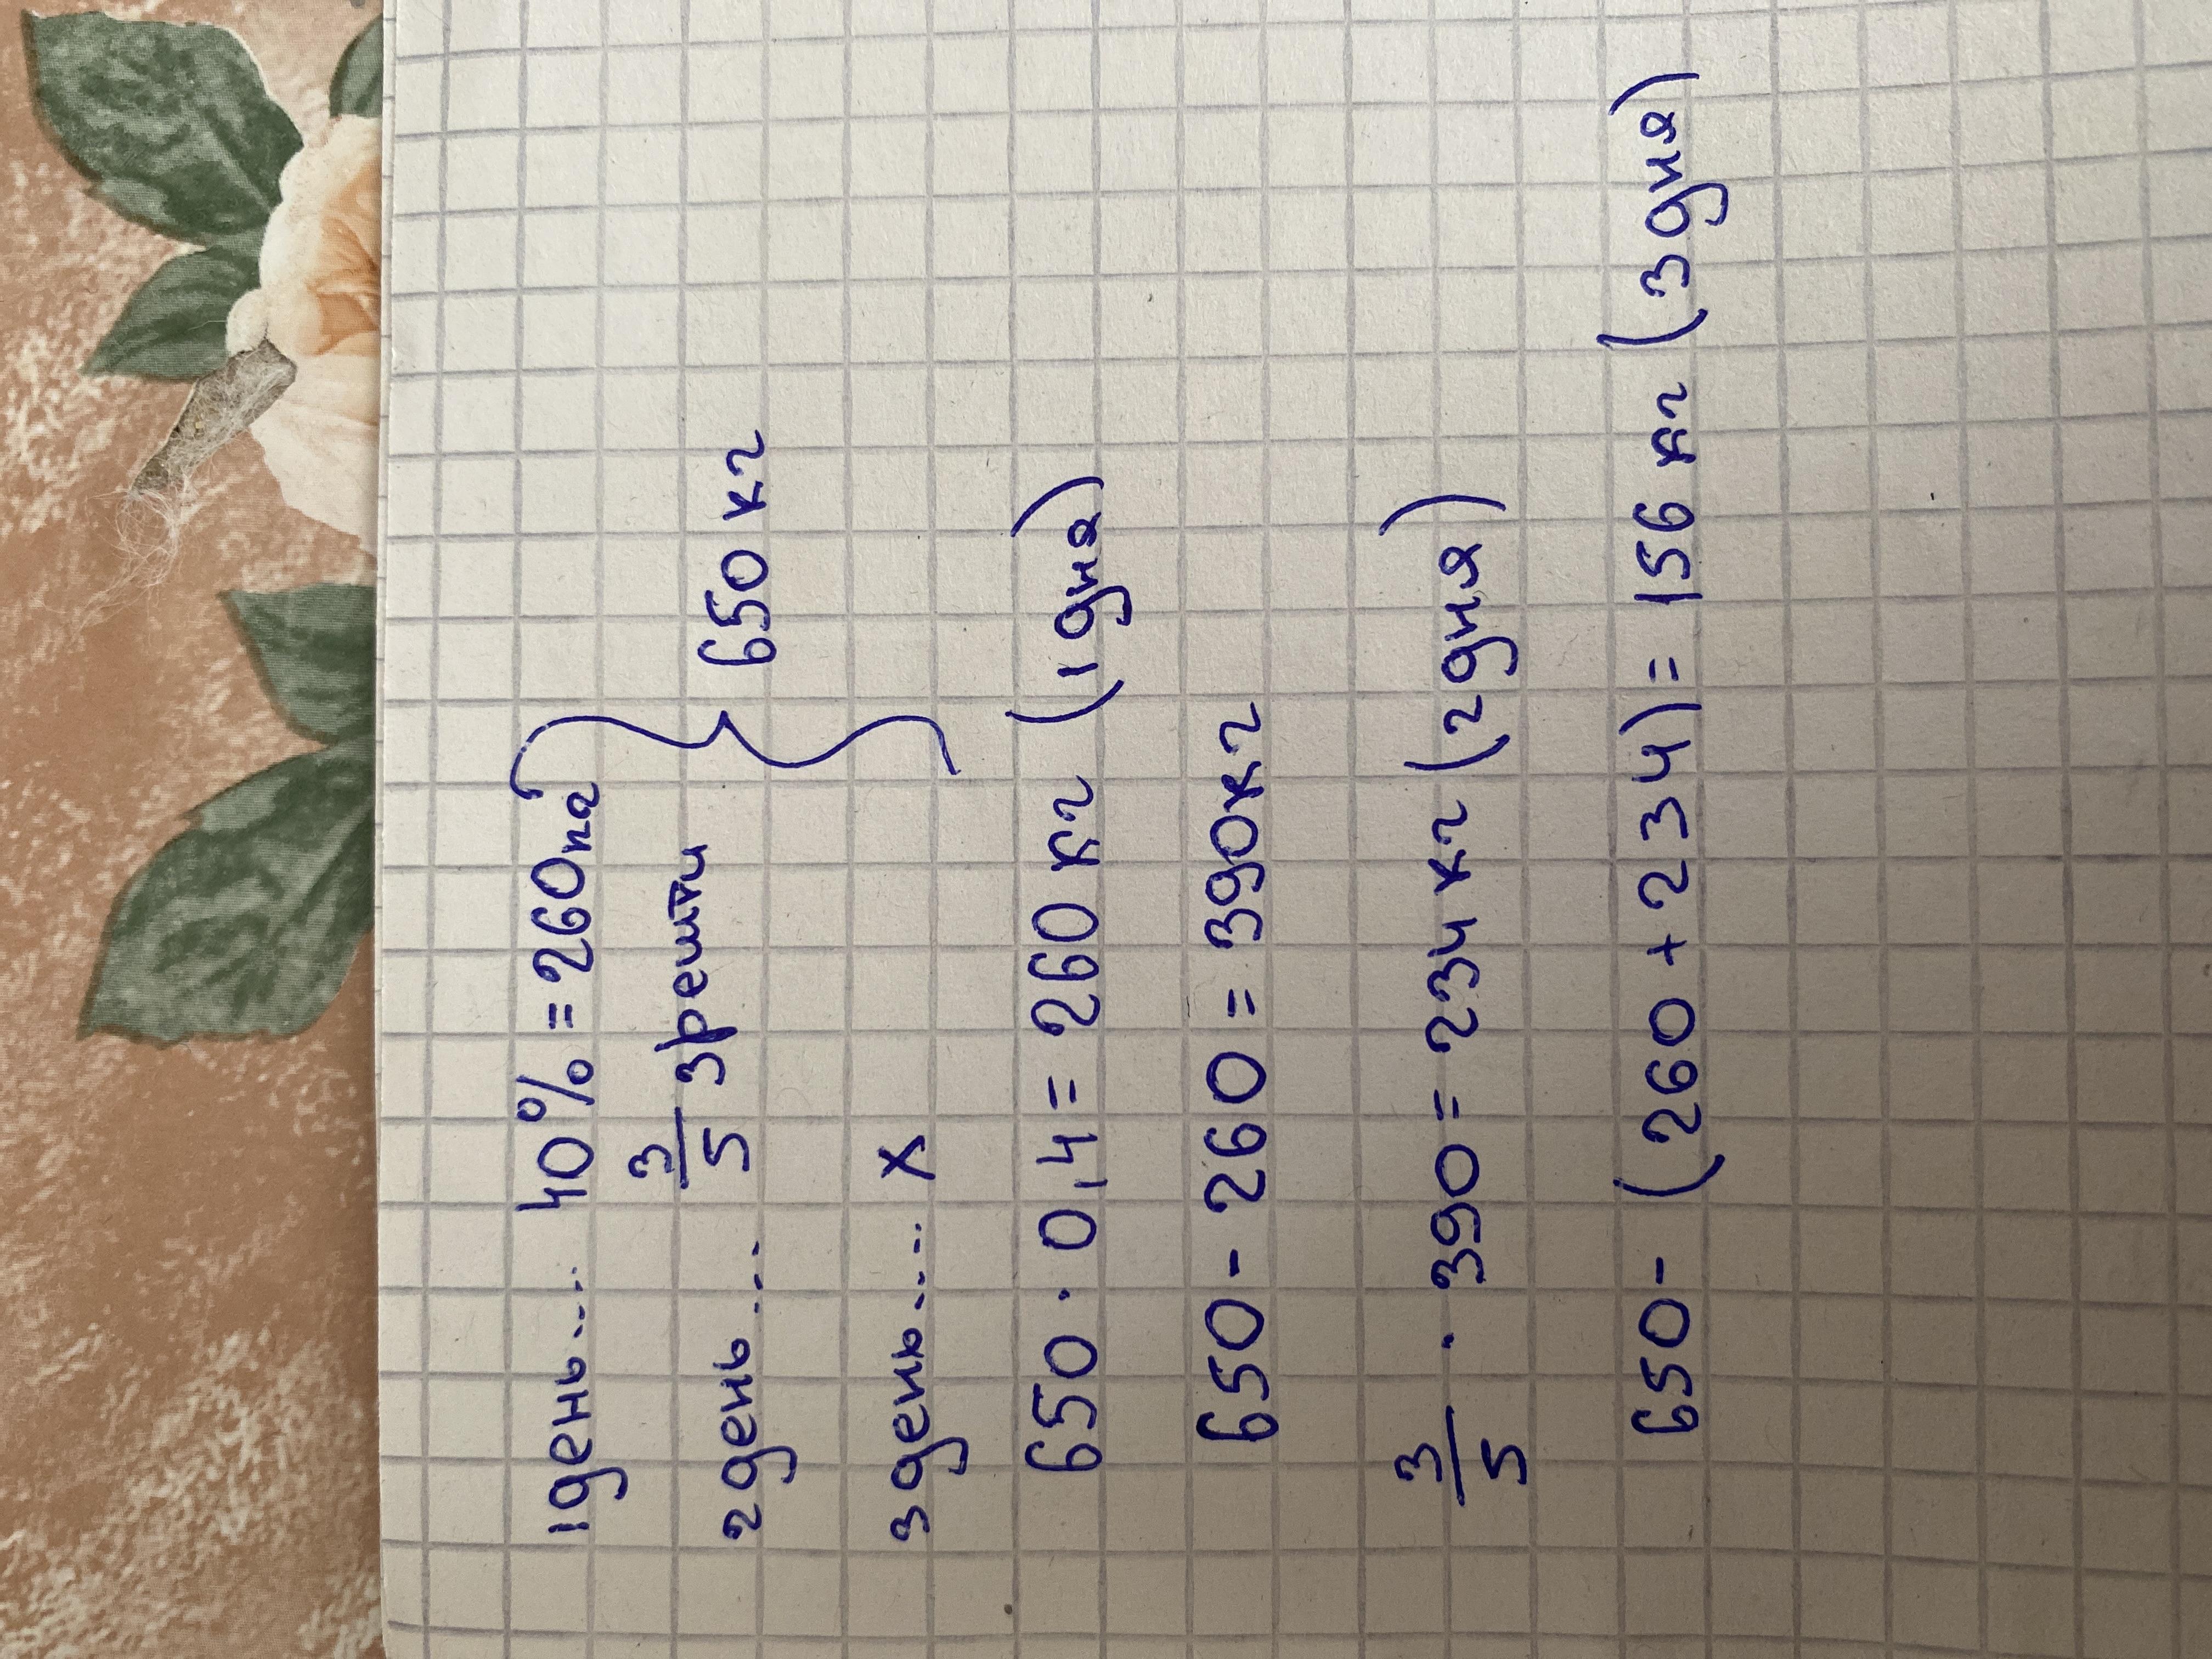 1 день.... 40% = 260 кг
2 день.... 3/5 зрешти } 650 кг
3 день.... x
650 · 0,4 = 260 кг (1 дня)
650 - 260 = 390 кг
3/5 · 390 = 234 кг (2 дня)
650 - (260 + 234) = 156 кг (3 дня)